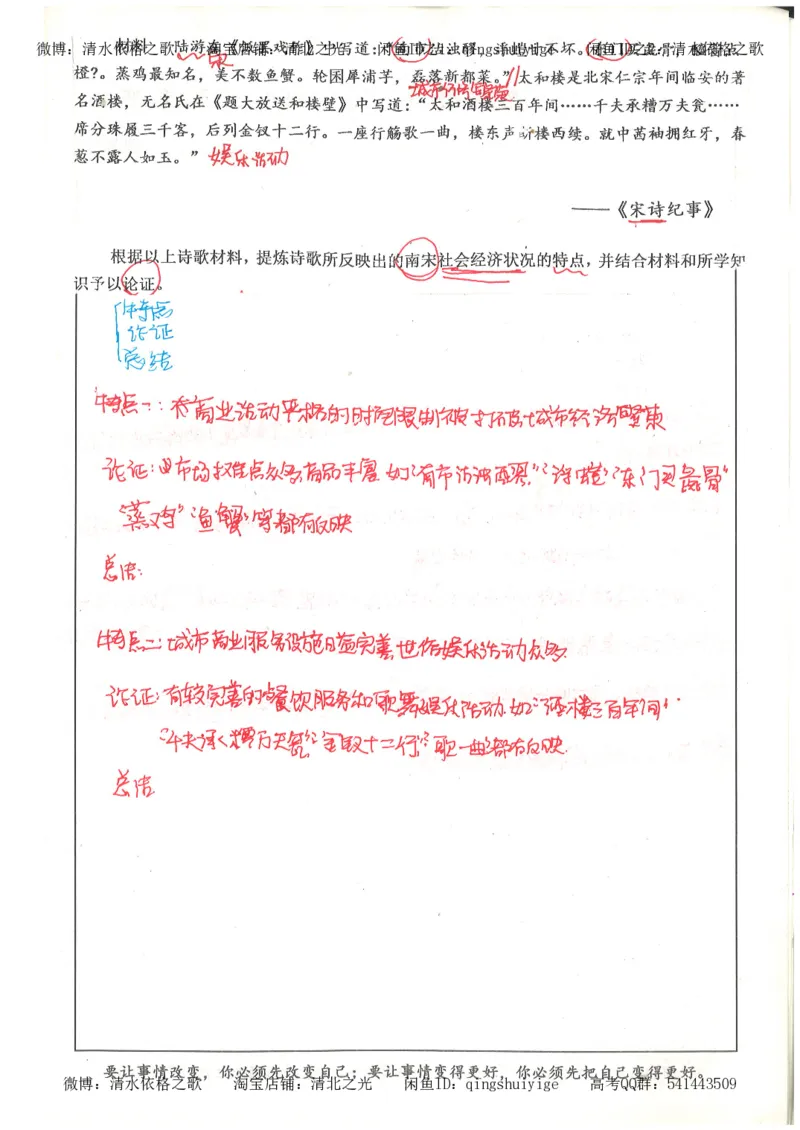 微博：清水依格之歌 淘宝店铺：清北之光 闲鱼ID：qingshuiyige 清水依格之歌
橙?。蒸鸡最知名，美不数鱼蟹。轮囷犀浦芋，磊落新都菜。”太和楼是北宋仁宗年间临安的著
城市经济繁荣
名酒楼，无名氏在《题大放送和楼壁》中写道：“太和酒楼三百年间……千夫承糟万夫瓮……
席分珠履三千客，后列金钗十二行。一座行觞歌一曲，楼东声断楼西续。就中茜袖拥红牙，春
葱不露人如玉。” 娱乐活动
——《宋诗纪事》
根据以上诗歌材料，提炼诗歌所反映出的南宋社会经济状况的特点，并结合材料和所学知
识予以论证。
特点
论证
总结
特点一：商业活动严格的时间限制被打破，城市经济繁荣
论证：市场摊点众多商品丰富，如“东门买彘骨”
“蒸鸡”“鱼蟹”等都有反映
总结：
特点二：城市商业服务设施日益完善世俗娱乐活动众多
论证：有较完善的餐饮服务和歌舞娱乐活动.如“酒楼三百年间”
“千夫承糟万夫瓮”“金钗十二行”“歌一曲”都有反映.
总结
要让事情改变，你必须先改变自己；要让事情变得更好，你必须先把自己变得更好。
微博：清水依格之歌 淘宝店铺：清北之光 闲鱼ID：qingshuiyige 高考QQ群：541443509